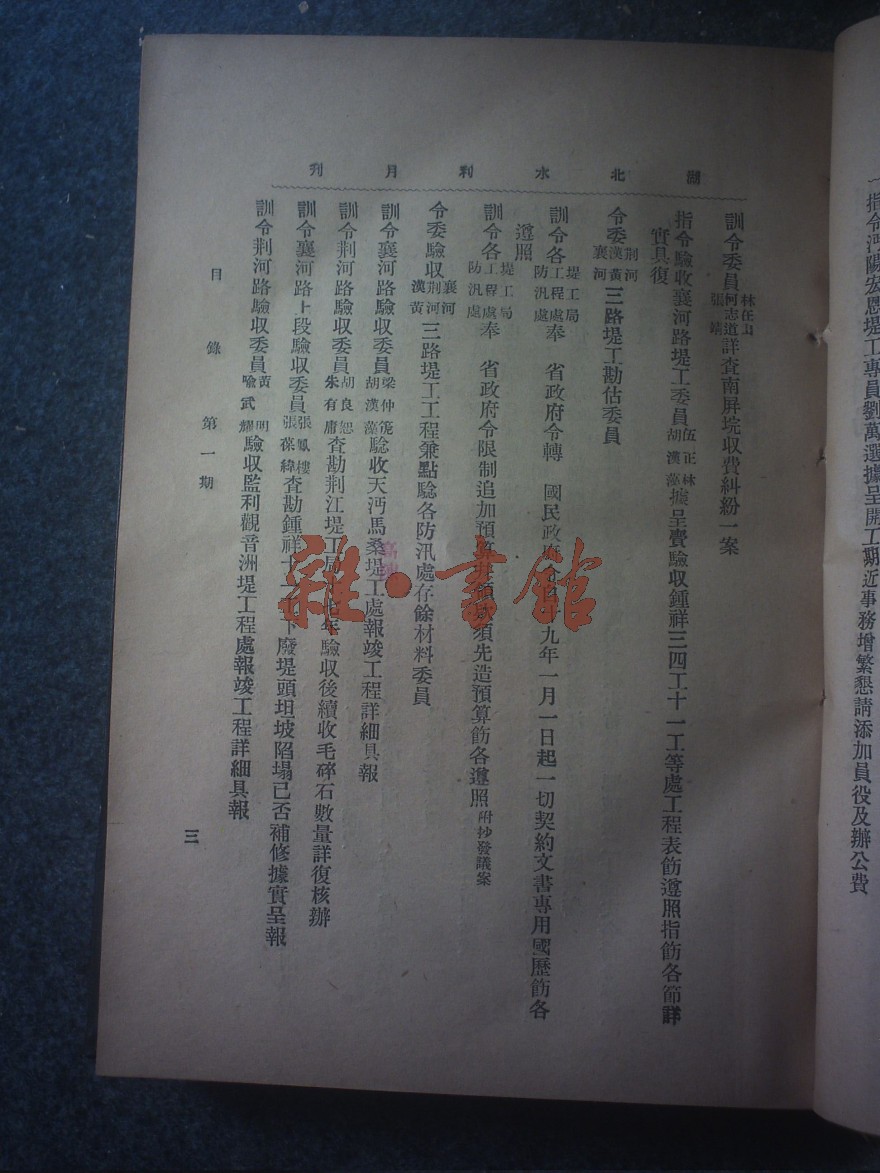 湖北水利月刊
訓令委員林任山何志道張靖詳查南屏垸收費糾紛一案
指令驗收襄河路堤工委員伍正林胡漢藻據呈賫驗收鍾祥三四工十一工等處工程表飭遵照指飭各節詳
實具復
令委荆河漢黃襄河三路堤工勘估委員
訓令各堤工局工程處防汛處奉 省政府令轉 國民政府令九年一月一日起一切契約文書專用國歷飭各
遵照
訓令各堤工局工程處防汛處奉 省政府令限制追加預算須先造預算飭各遵照附抄發議案
令委驗收襄河荆河漢黃三路堤工工程兼點驗各防汛處存餘材料委員
訓令襄河路驗收委員梁仲胡漢藻驗收天沔馬桑堤工處報竣工程詳細具報
訓令荆河路驗收委員胡良恕朱有庸查勘荆江堤工局年驗收後續收毛碎石數量詳復核辦
訓令襄河路上段驗收委員張鳳樓張葆緯查勘鍾祥十下廢堤頭坦坡陷塌已否補修據實呈報
訓令荆河路驗收委員黃明喩武耀驗收監利觀音洲堤工程處報竣工程詳細具報
目錄 第一期
三
指令沔陽宏恩堤工專員劉萬選據呈開工期近事務增繁懇請添加員役及辦公費
雜·書館